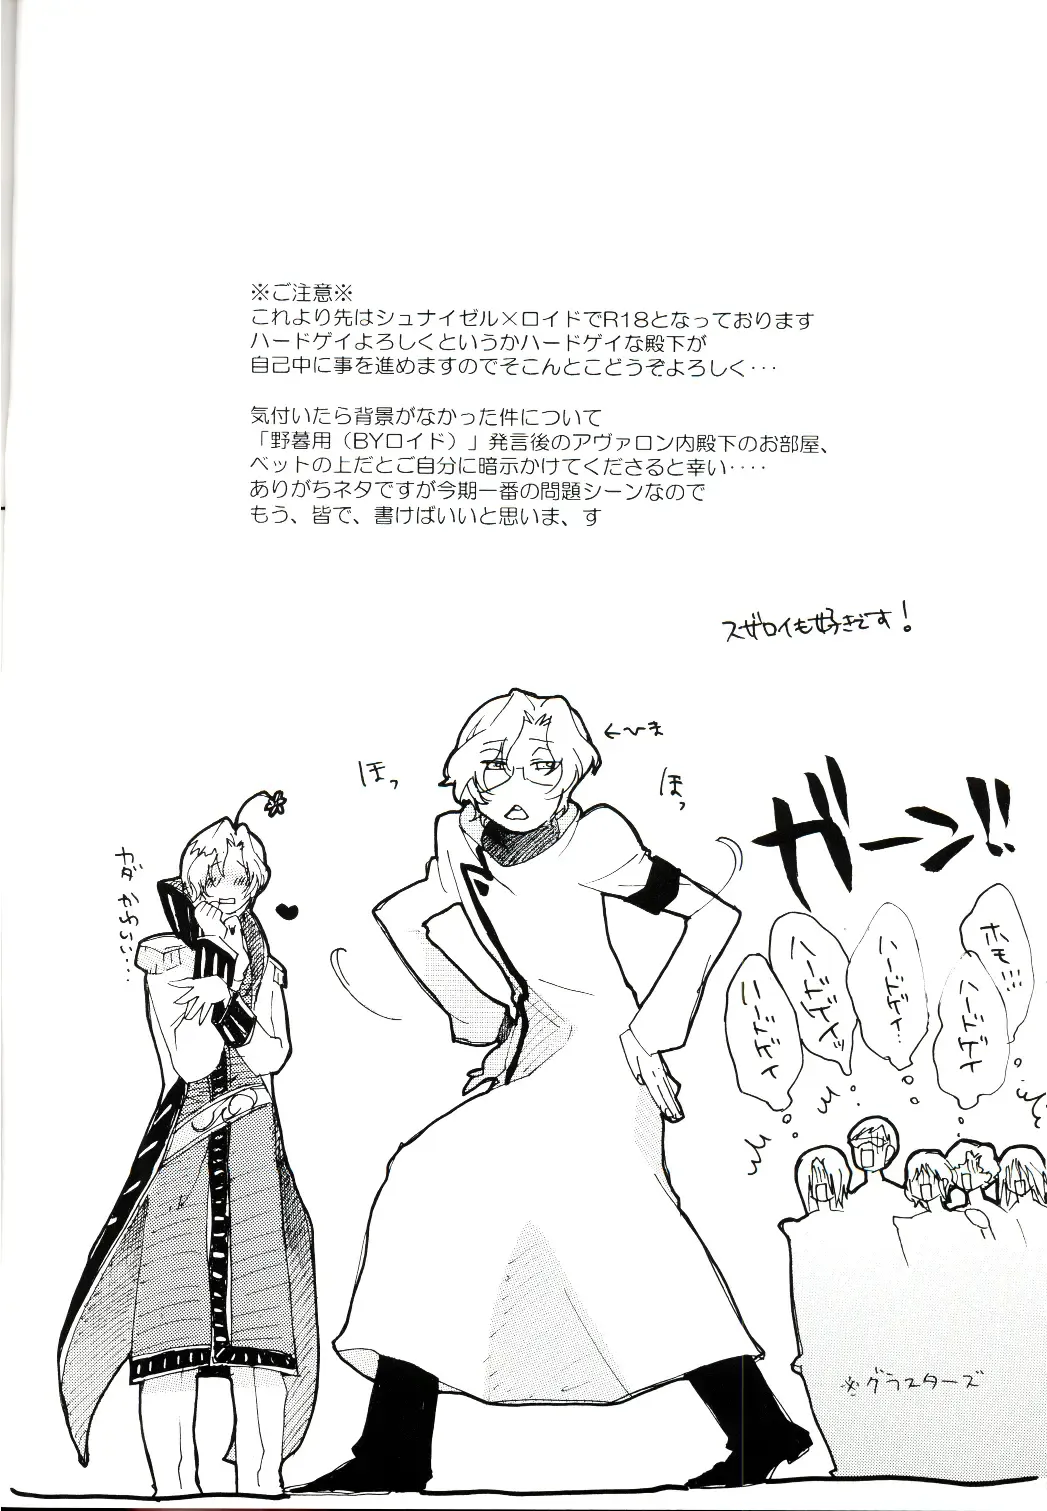 ※ご注意※
これより先はシュナイゼル×ロイドでR18となっております
ハードゲイよろしくというかハードゲイな殿下が
自己中に事を進めますのでそこんとこどうぞよろしく・・・
気付いたら背景がなかった件について
「野暮用（BYロイド）」発言後のアヴァロン内殿下のお部屋、
ベットの上だとご自分に暗示かけてくださると幸い・・・・
ありがちネタですが今期一番の問題シーンなので
もう、皆で、書けばいいと思いま、す
スザロイも好きです！
←ひま
ほっ
ほっ
ガーン!!
ホモ…!!
ハードゲイ
ハードゲイ…
ハードゲイッ
ハードゲイ
かわいい…
※グラスターズ